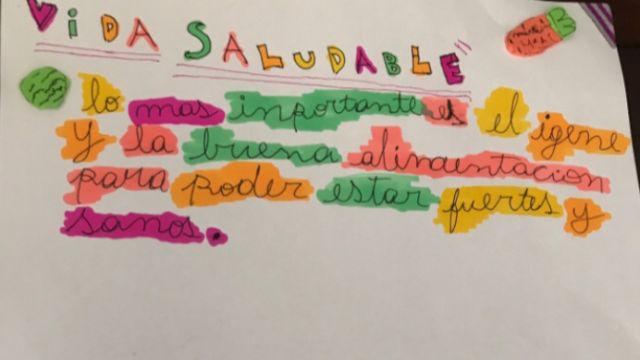 VIDA SALUDABLE
lo mas inportante es el igene
y la buena alimentacion
para poder estar fuertes y
sanos.